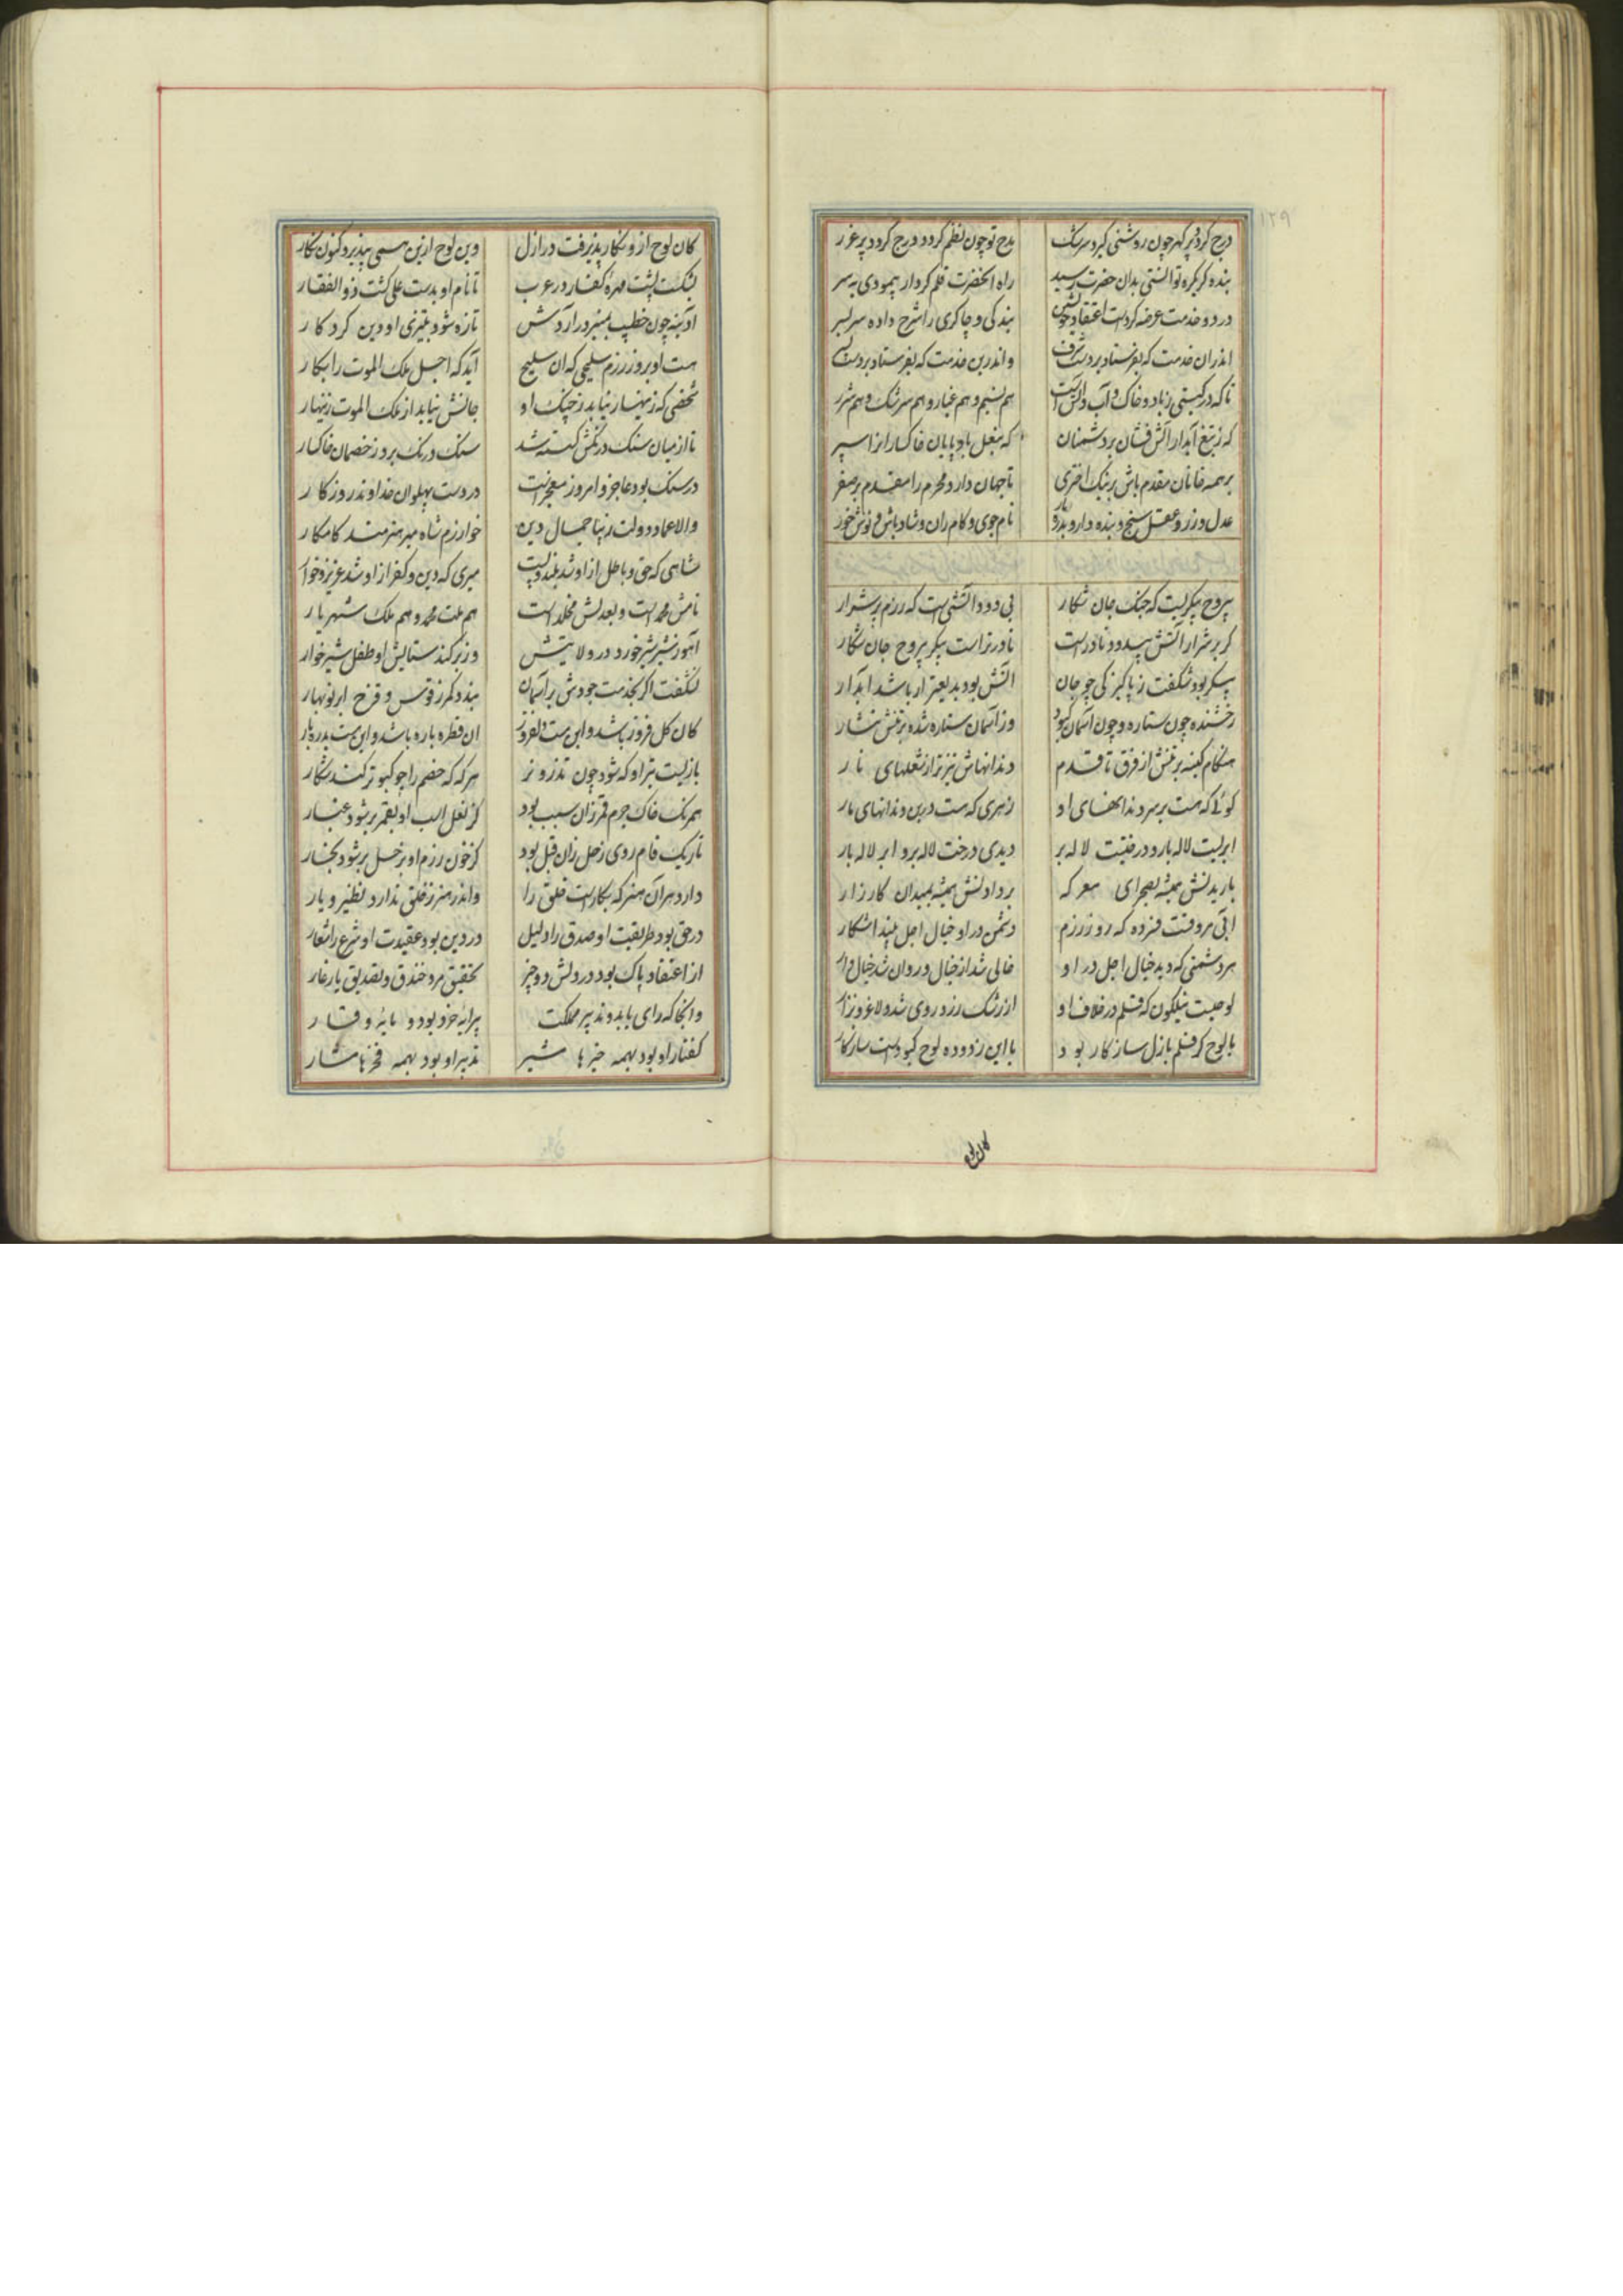 ۱۲۹
درج گردد پر گهر چون روشنی گیرد سرشک مدح تو چون نظم گردد درج گردد پر غرر
بنده گر یکره توانستی بدان حضرت رسید راه آنحضرت قلم کردار پیمودی به سر
در دو خدمت عرضه کردست اعتقاد خویش بندگی و چاکری را شرح داده سر بسر
اندران خدمت که بفرستاد بر دست شرف واندرین خدمت که بفرستاد بر دست
تا که در گیتی ز باد و خاک و آب و آتش است هم نسیم و هم غبار و هم سرشک و هم شرر
که ز تیغ آبدار آتش فشان بر دشمنان که بنعل باد پایان خاکسار از
بر همه خانان مقدم باش بر نیک اختری تا جهان دارد محرم را مقدم بر صفر
عدل ورز و عقل سنج و بنده دار و نام جوی و کام ران و شاد باش و نوش خور
بیروح پیکریست که جنگ جان شکار بی دود آتشی است که رزم پر شرار
گر پر شرار آتش بیدود نادرست نادرتر است پیکر بیروح جان شکار
پیکر بود شگفت ز پاکیزگی چو جان آتش بود بدیع تر ار باشد آبدار
رخشنده چون ستاره و چون آسمان کبود وز آسمان ستاره شده بر تنش نثار
هنگام کینه بر تنش از فرق تا قدم دندانهاش تیزتر از شعلهای نار
گوئی که هست بر سر دندانهای او زهری که هست در بن دندانهای مار
ابریست لاله بار و درختیست لاله بر دیدی درخت لاله بر و ابر لاله بار
باریدنش همیشه بصحرای معرکه بر دادنش همیشه بمیدان کارزار
آبی مروقست فسرده که روز رزم دشمن در او خیال اجل بیند آشکار
هر دشمنی که دید خیال اجل در او خالی شد از خیال و روان شد خیال
لوحیست نیلگون که قلم در خلاف او از رشک زرد روی شد و لاغر و نزار
با لوح گر قلم بازل سازگار بود با این زدوده لوح کبودست سازگار
کان لوح
کان لوح از و نگار پذیرفت در ازل وین لوح ازین همی بپذیرد کنون نگار
بشکست پشت مهره کفار در عرب تا نام او بدست علی گشت ذوالفقار
آدینه چون خطیب بمنبر در آردش تازه شود بتیزی او دین کردکار
هست او بروز رزم سلیحی که آن سلیح آید که اجل ملک الموت را بکار
شخصی که زینهار نیابد ز جنگ او جانش نیابد از ملک الموت زینهار
تا از میان سنگ درنگش گسسته شد سنگ و درنگ برد ز خصمان خاکسار
در سنگ بود عاجز و امروز معجزست در دست پهلوان خداوند روزگار
والا عماد دولت دنیا جمال دین خوارزم شاه میر هنرمند کامکار
شاهی که حق و باطل از او شد بلند و پست میری که دین و کفر از او شد عزیز و خوار
نامش محمد است و بعدلش مخلد است هم ملت محمد و هم ملک شهریار
آهو ز شیر شیر خورد در ولایتش وز بر کند ستایش او طفل شیر خوار
نشگفت اگر بخدمت جودش بر آسمان بندد کمر ز قوس و قزح ابر نوبهار
کان گل فروز باشد و این هست دلفروز آن قطره باره باشد و این هست بدره بار
بازیست تیر او که شود چون تذرو نر هر گه که خصم را چو کبوتر کند شکار
همرنگ خاک جرم قمر زان سبب بود کز نعل اسب او بقمر بر شود غبار
تاریک فام روی زحل زان قبل بود کز خون رزم او بزحل بر شود بخار
دارد هر آن هنر که بکارست خلق را واندر هنر ز خلق ندارد نظیر و یار
در حق بود طریقت او صدق را دلیل در دین بود عقیدت او شرع را شعار
از اعتقاد پاک بود در دلش دو چیز تحقیق مرد خندق و تصدیق یار غار
وانجا که رای باید و تدبیر مملکت پیرایه خرد بود و مایه وقار
گفتار او بود بهمه خیرها مشیر تدبیر او بود بهمه فخرها مشار